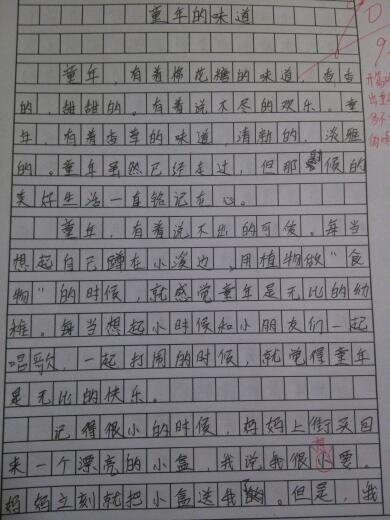 童年的味道
童年，有着棉花糖的味道，香香
的，甜甜的。有着说不尽的欢乐。童
年，有着香草的味道，清新的，淡雅
的。童年虽然已经走过，但那时候的
美好生活一直铭记在心。
童年，有着说不出的可使。每当
想起自己蹲在小溪边，用植物做“食
物”的时候，就感觉童年是无比的幼
稚。每当想起小时候和小朋友们一起
唱歌，一起打闹的时候，就觉得童年
是无比的快乐。
记得很小的时候，妈妈上街买回
来一个漂亮的小盒，我说我很想要。
妈妈立刻就把小盒送我。但是，我